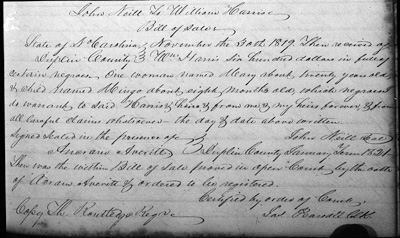 John Neill To William Harris
Bill of Sale
State of N. Carolina, November the 30th 1819. Then received of
Duplin County Wm Harris Six hundred dollars in full of
certain negroes. One woman named Mary about twenty years old
& child named Mingo about eight months old, which negroes I
do warrant to said Harris & heirs & from me & my heirs forever, & from
all lawful claims whatsoever the day & date above written
Signed Sealed in the presence of John Neill Seal
Averitt Duplin County January Term 1821
Then was the within Bill of Sale proved in open Court by the oath
of Averitt & ordered to be registered.
Certified by order of Court
Copy Th. Routledge Regr. Jas Pearsall Clk